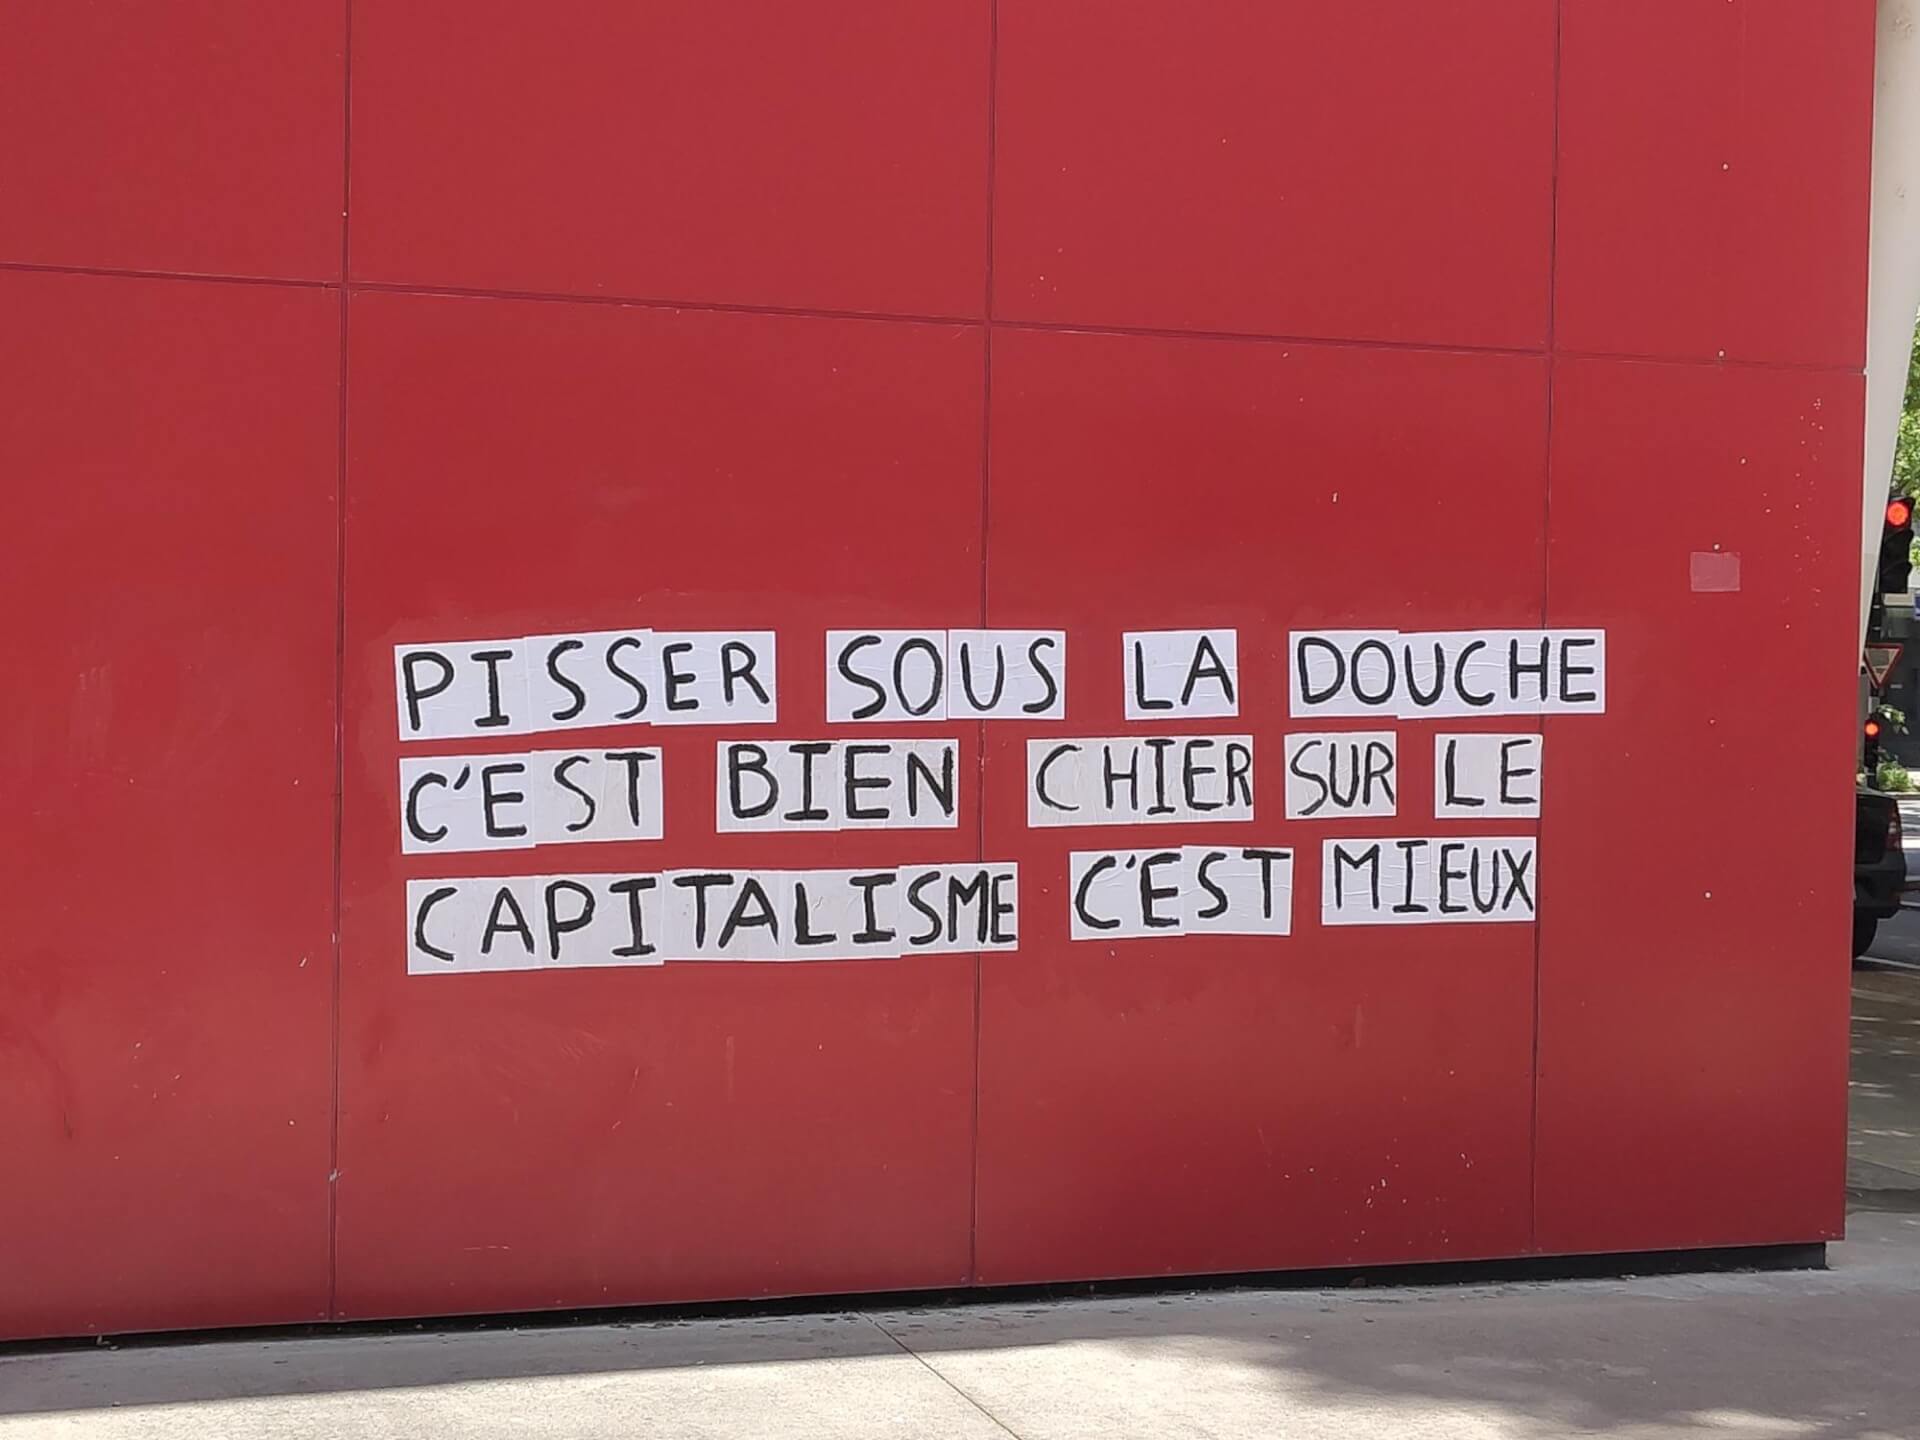 PISSER SOUS LA DOUCHE
C'EST BIEN CHIER SUR LE
CAPITALISME C'EST MIEUX